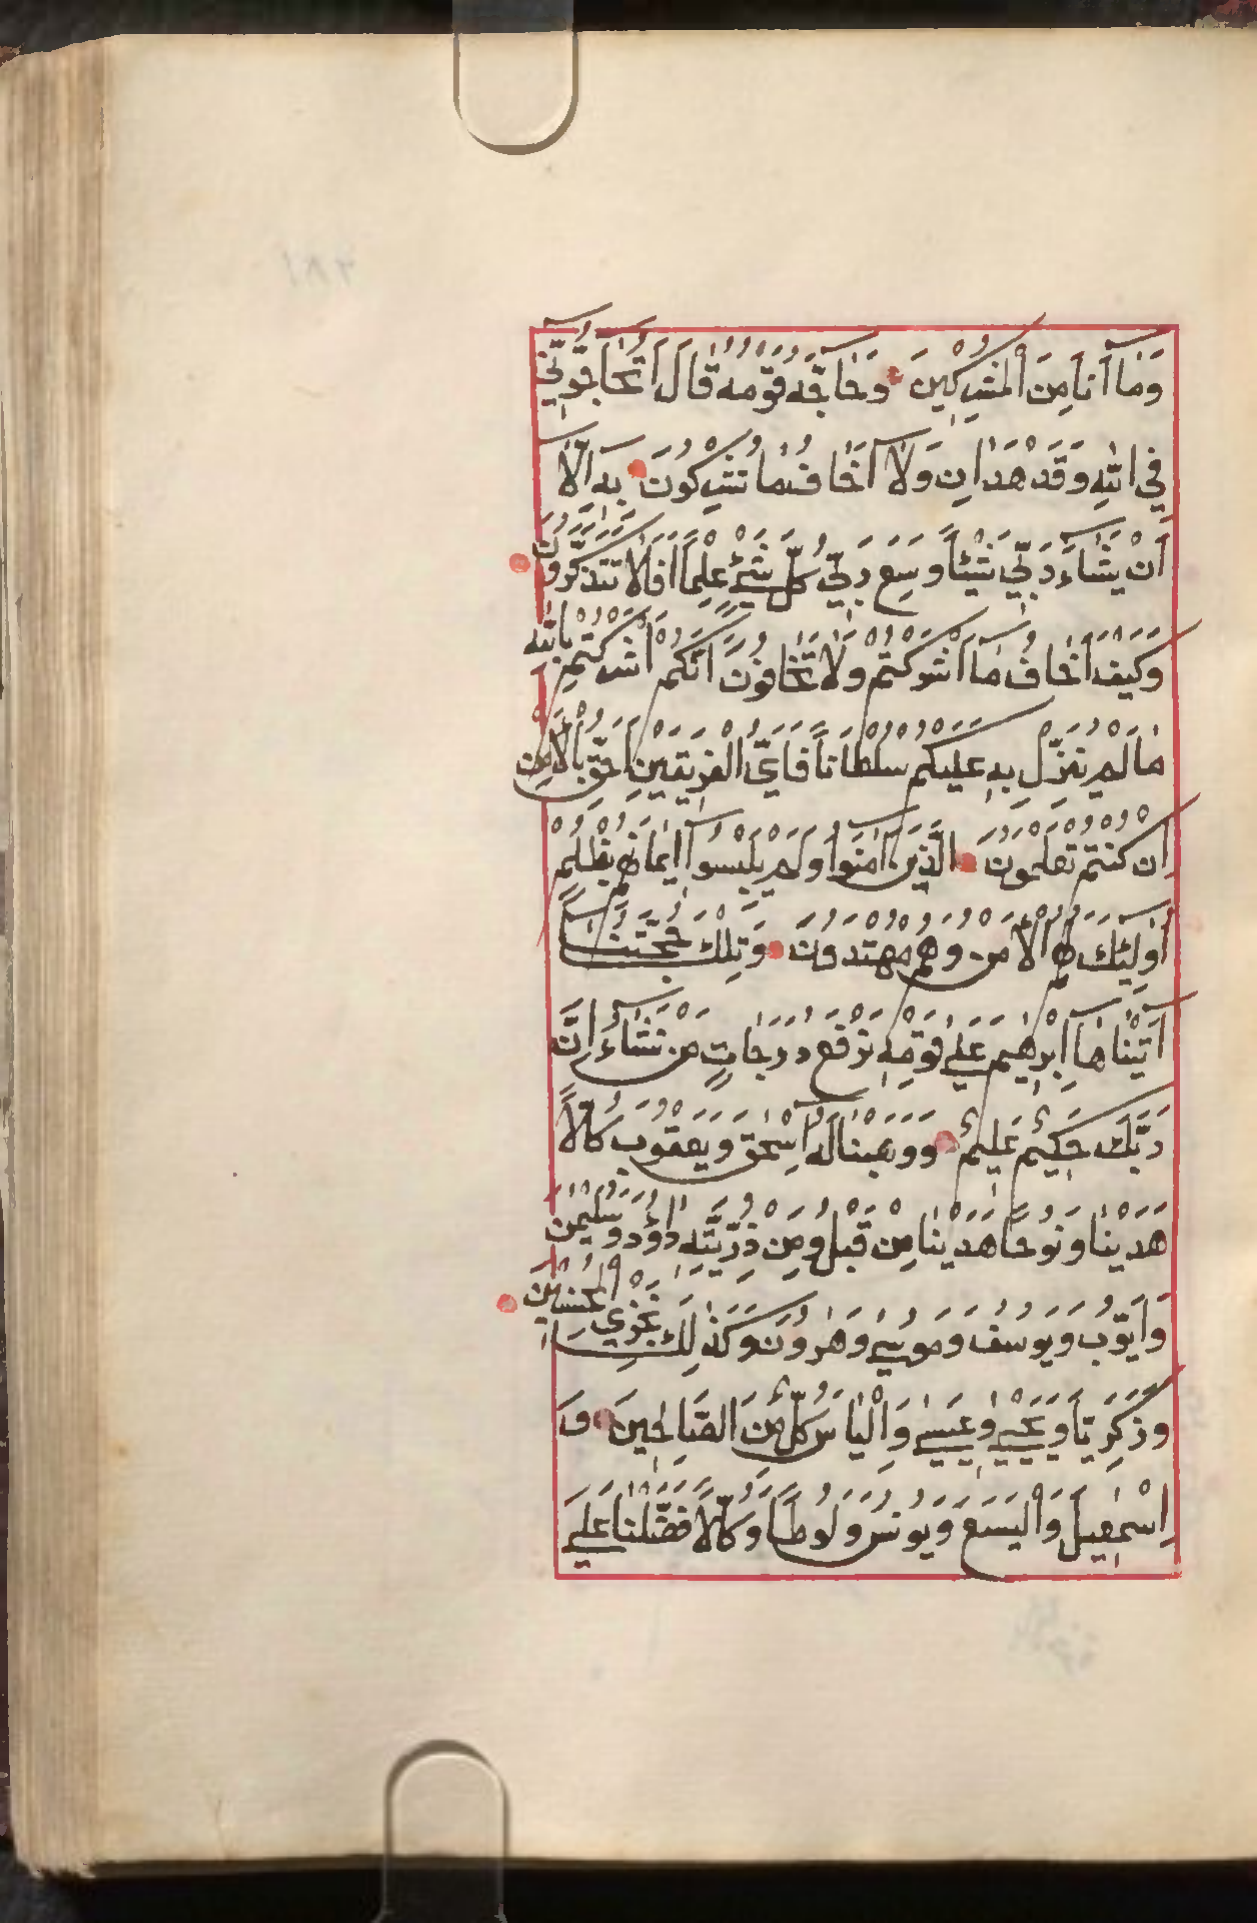 وَمَا أَنَا مِنَ الْمُشْرِكِينَ وَحَاجَّهُ قَوْمُهُ قَالَ أَتُحَاجُّونِّي
فِي اللّٰهِ وَقَدْ هَدَانِ وَلَا أَخَافُ مَا تُشْرِكُونَ بِهِ إِلَّا
أَنْ يَشَاءَ رَبِّي شَيْئًا وَسِعَ رَبِّي كُلَّ شَيْءٍ عِلْمًا أَفَلَا تَتَذَكَّرُونَ
وَكَيْفَ أَخَافُ مَا أَشْرَكْتُمْ وَلَا تَخَافُونَ أَنَّكُمْ أَشْرَكْتُمْ بِاللّٰهِ
مَا لَمْ يُنَزِّلْ بِهِ عَلَيْكُمْ سُلْطَانًا فَأَيُّ الْفَرِيقَيْنِ أَحَقُّ بِالْأَمْنِ
إِنْ كُنْتُمْ تَعْلَمُونَ الَّذِينَ آمَنُوا وَلَمْ يَلْبِسُوا إِيمَانَهُمْ بِظُلْمٍ
أُولٰئِكَ لَهُمُ الْأَمْنُ وَهُمْ مُهْتَدُونَ وَتِلْكَ حُجَّتُنَا
آتَيْنَاهَا إِبْرٰهِيمَ عَلَىٰ قَوْمِهِ نَرْفَعُ دَرَجَاتٍ مَنْ نَشَاءُ إِنَّ
رَبَّكَ حَكِيمٌ عَلِيمٌ وَوَهَبْنَا لَهُ إِسْحٰقَ وَيَعْقُوبَ كُلًّا
هَدَيْنَا وَنُوحًا هَدَيْنَا مِنْ قَبْلُ وَمِنْ ذُرِّيَّتِهِ دَاوُدَ وَسُلَيْمٰنَ
وَأَيُّوبَ وَيُوسُفَ وَمُوسَىٰ وَهٰرُونَ وَكَذٰلِكَ نَجْزِي الْمُحْسِنِينَ
وَزَكَرِيَّا وَيَحْيَىٰ وَعِيسَىٰ وَإِلْيَاسَ كُلٌّ مِنَ الصَّالِحِينَ وَ
إِسْمٰعِيلَ وَالْيَسَعَ وَيُونُسَ وَلُوطًا وَكُلًّا فَضَّلْنَا عَلَى